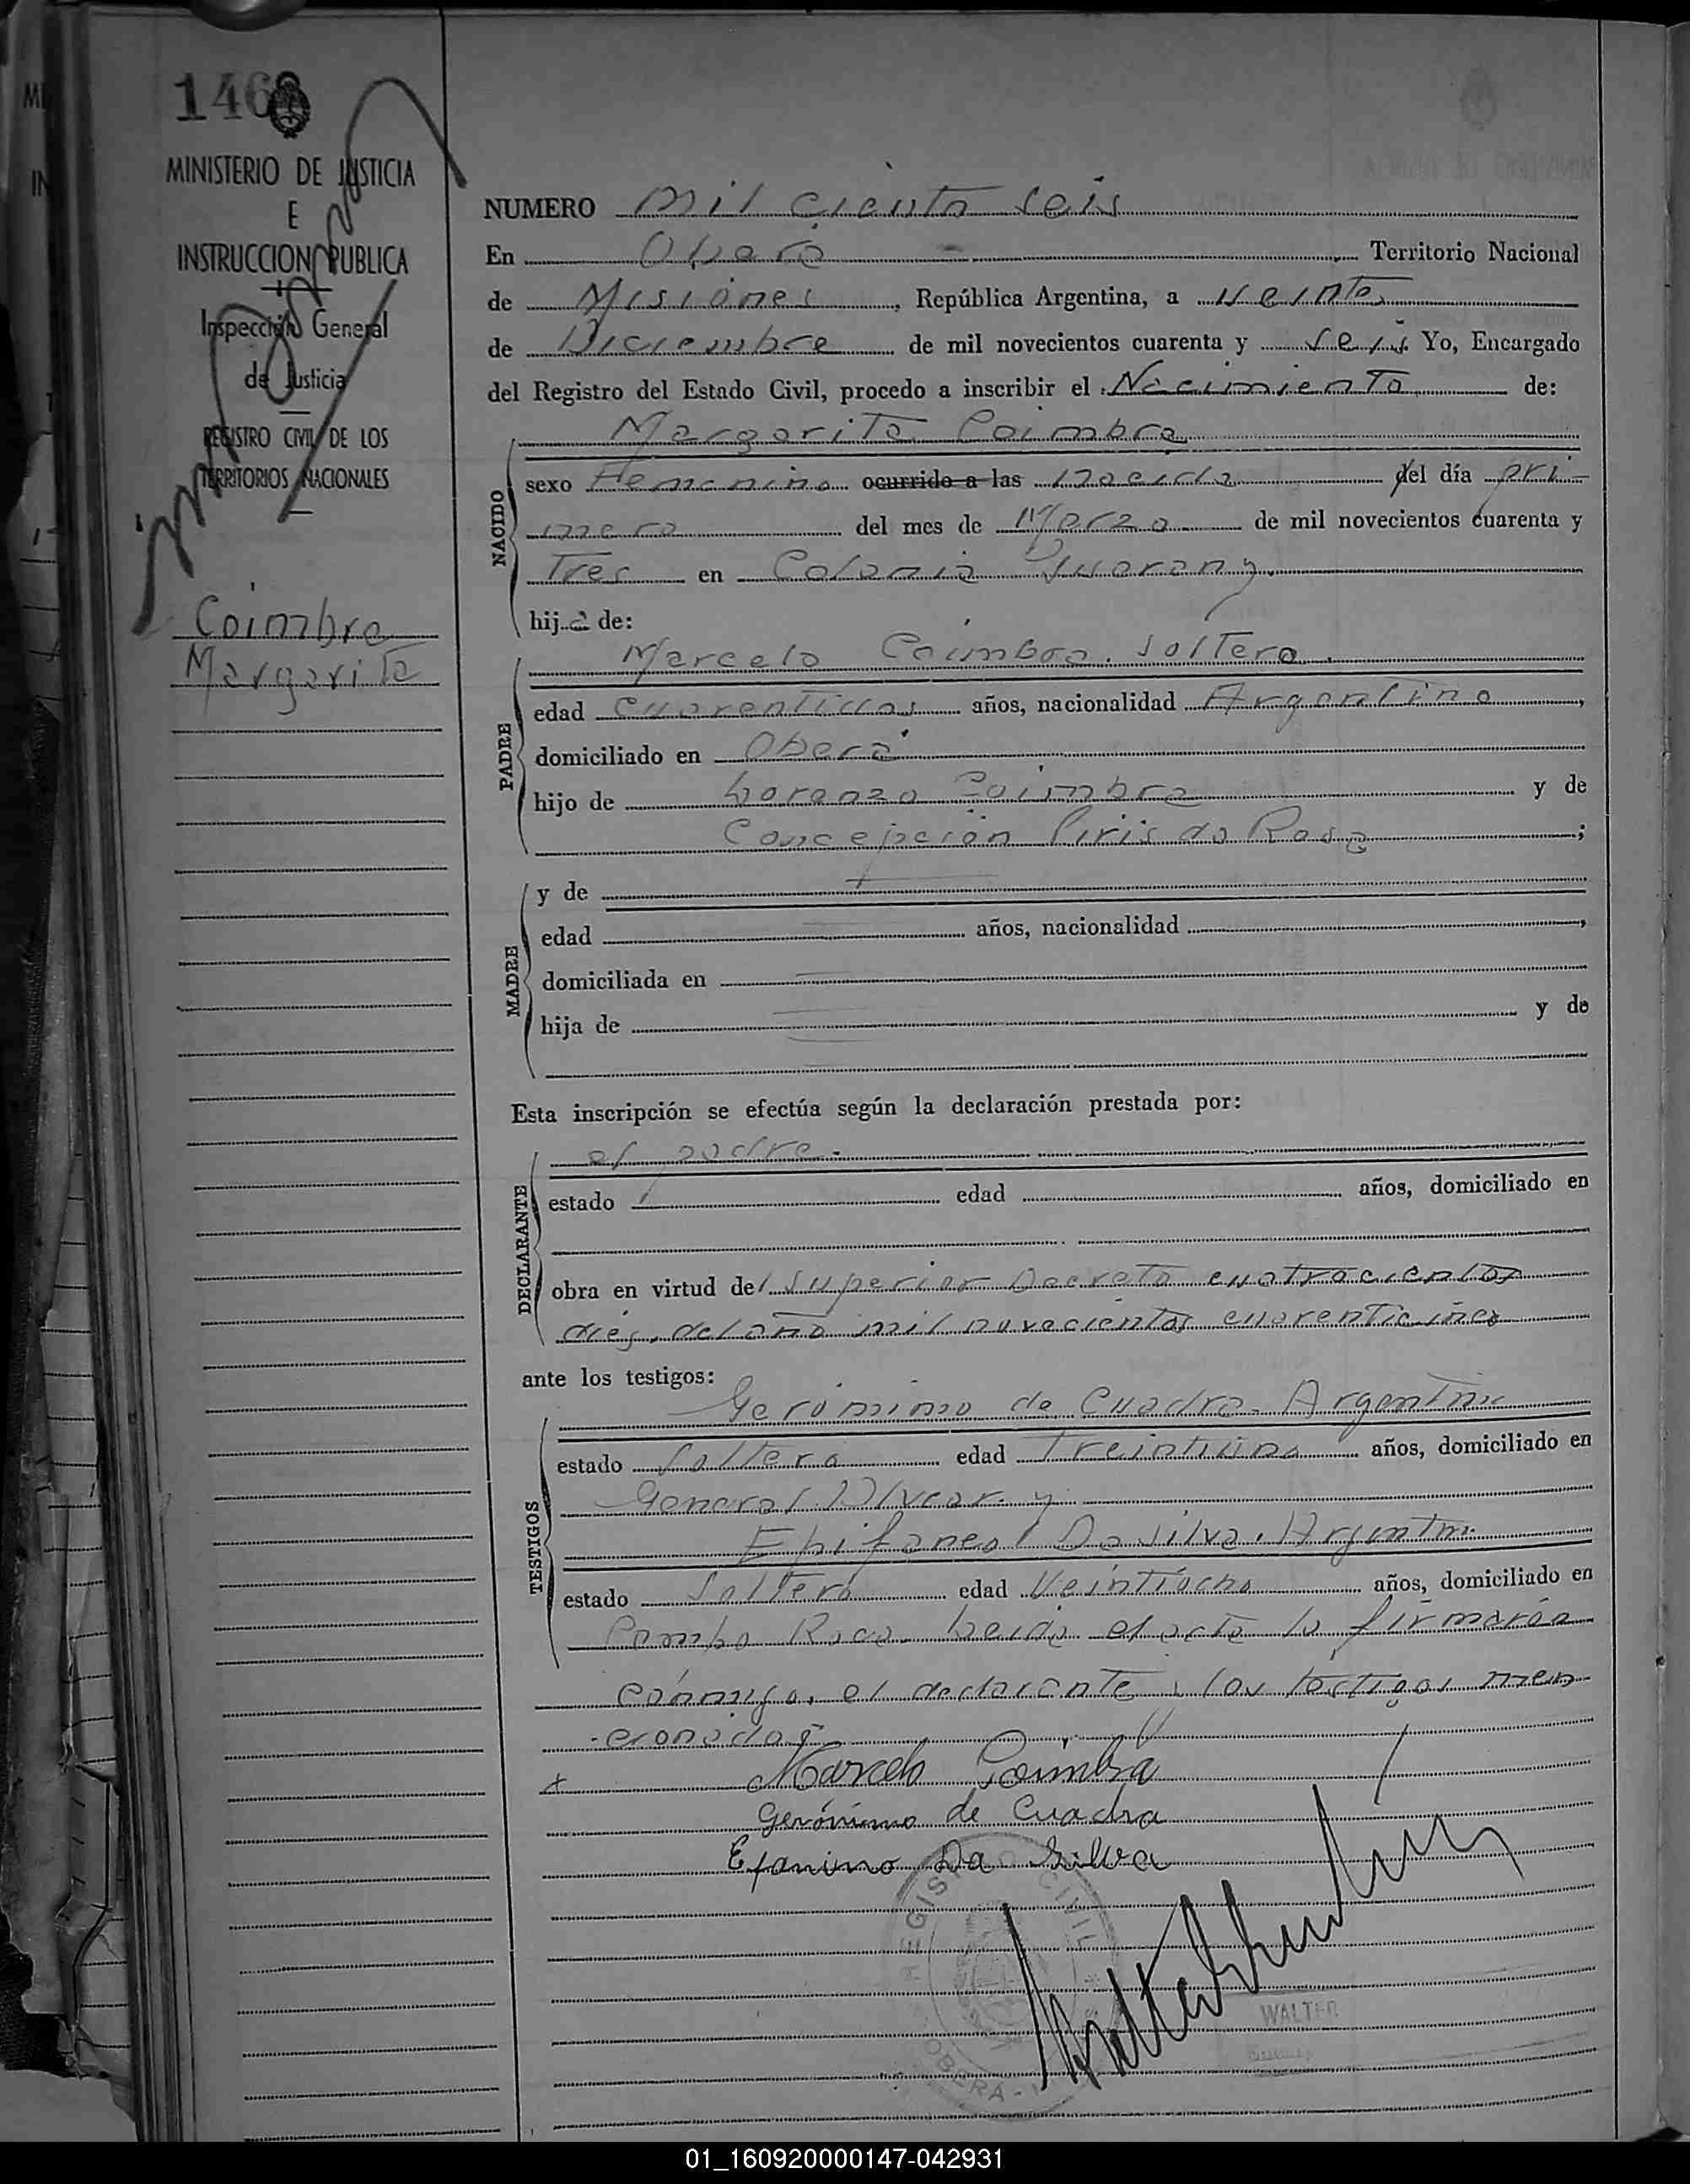 146
MINISTERIO DE JUSTICIA
E
INSTRUCCION PUBLICA
Inspección General
de Justicia
REGISTRO CIVIL DE LOS
TERRITORIOS NACIONALES
Coimbra
Margarita
NUMERO mil ciento seis
En Oberá Territorio Nacional
de Misiones, República Argentina, a veinte
de Diciembre de mil novecientos cuarenta y seis Yo, Encargado
del Registro del Estado Civil, procedo a inscribir el Nacimiento de:
NACIDO
Margarita Coimbra
sexo Femenino ocurrido a las nacida del día pri-
mero del mes de Marzo de mil novecientos cuarenta y
Tres en Colonia Guarany.
hija de:
PADRE
Marcelo Coimbra. Soltero.
edad cuarentidos años, nacionalidad Argentino,
domiciliado en Oberá
hijo de Lorenzo Coimbra y de
Concepción Piris da Rosa;
MADRE
y de
edad años, nacionalidad
domiciliada en
hija de y de
Esta inscripción se efectúa según la declaración prestada por:
DECLARANTE
el padre.
estado edad años, domiciliado en
obra en virtud del Superior Decreto cuatrocientos
diés, del año mil novecientos cuarenticinco
ante los testigos:
TESTIGOS
Gerónimo de Cuadra. Argentino
estado Soltero edad Treintiuno años, domiciliado en
General Alvear. y
Epifaneo Da Silva. Argentino
estado Soltero edad Veintiocho años, domiciliado en
Campo Roca. Leida el acta la firmaron
conmigo, el declarante y los testigos men-
cionados
Marcelo Coimbra
Gerónimo de Cuadra
Efanino Da Silva
REGISTRO CIVIL
OBERA
WALTER
01_160920000147-042931